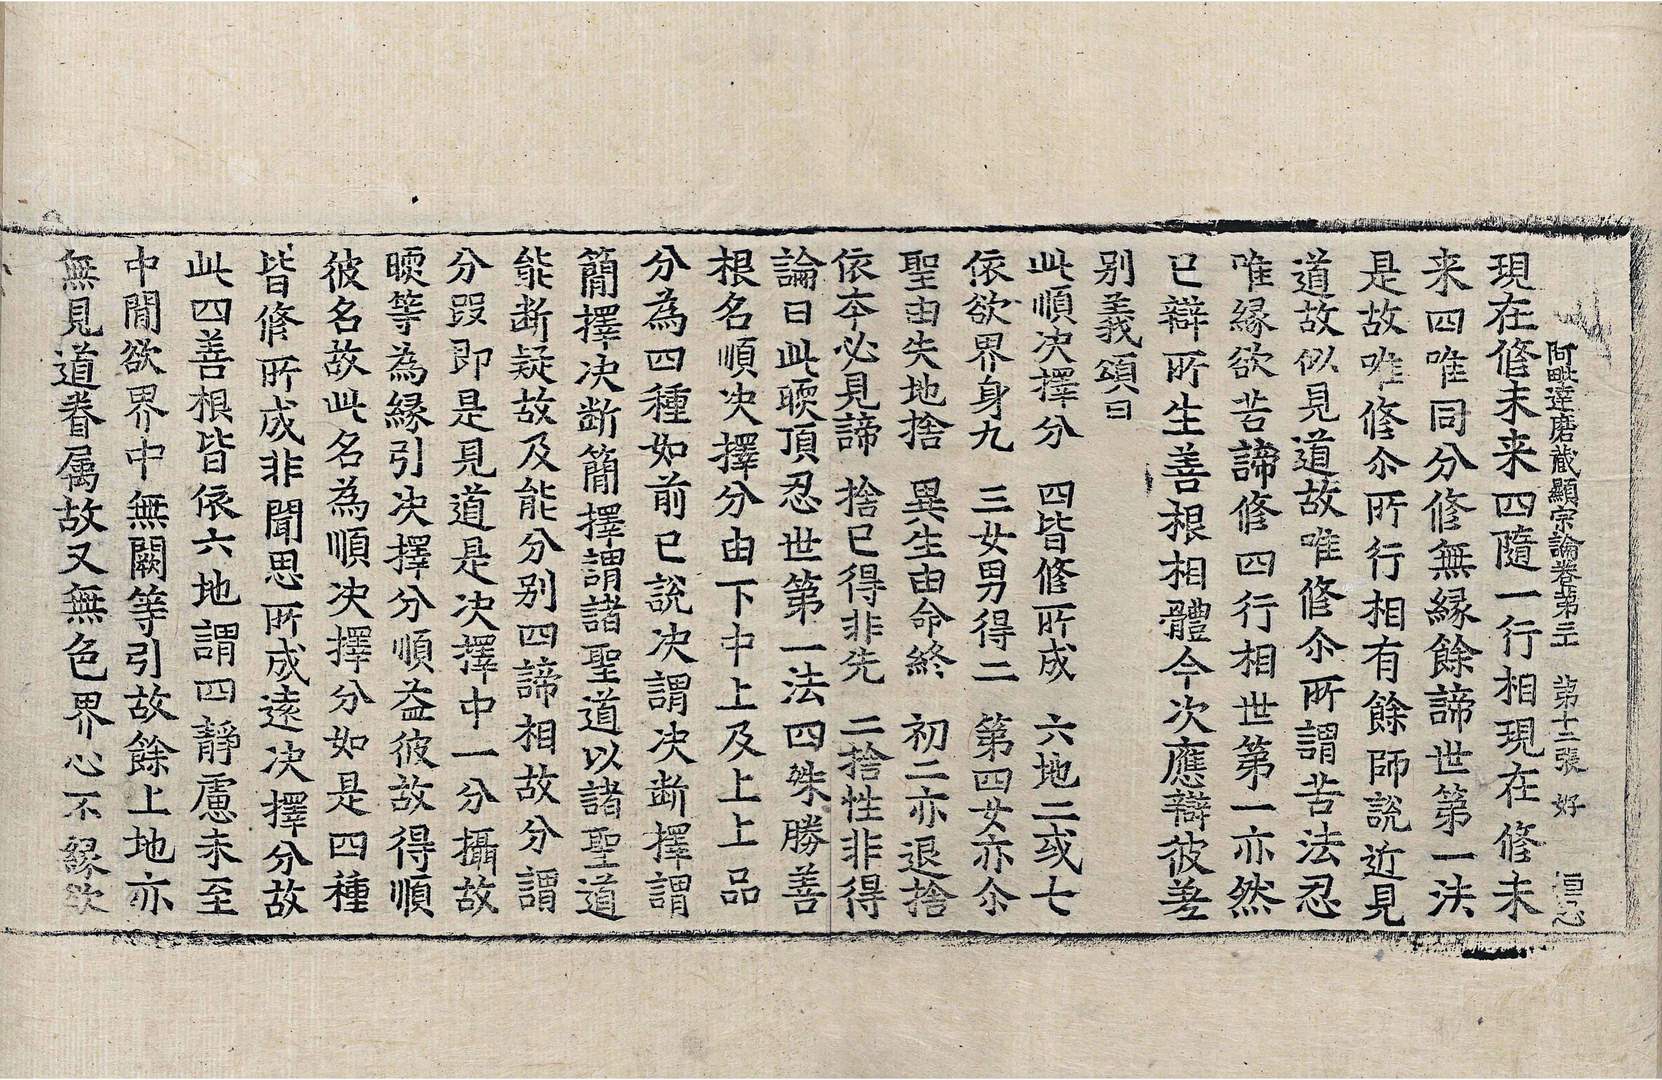 阿毗達磨藏顯宗論卷第三十 第十二張 好
現在修未来四隨一行相現在修未
来四唯同分修無緣餘諦世第一法
是故唯修尒所行相有餘師說近見
道故似見道故唯修尒所謂苦法忍
唯緣欲苦諦修四行相世第一亦然
已辯所生善根相體今次應辯彼差
別義頌曰
此順決擇分 四皆修所成 六地二或七
依欲界身九 三女男得二 第四女亦尒
聖由失地捨 異生由命終 初二亦退捨
依本必見諦 捨已得非先 二捨性非得
論曰此暖頂忍世第一法四殊勝善
根名順決擇分由下中上及上上品
分為四種如前已說決謂決斷擇謂
簡擇決斷簡擇謂諸聖道以諸聖道
能斷疑故及能分别四諦相故分謂
分段即是見道是決擇中一分攝故
暖等為緣引決擇分順益彼故得順
彼名故此名為順決擇分如是四種
皆修所成非聞思所成遠決擇分故
此四善根皆依六地謂四靜慮未至
中間欲界中無闕等引故餘上地亦
無見道眷属故又無色界心不緣欲